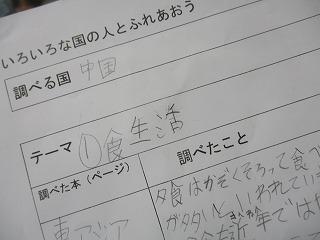 いろいろな国の人とふれあおう
調べる国 中国
テーマ ①食生活
調べた本(ページ) 調べたこと
東アジア
夕食はかぞくそろって食べ
が多いといわれてい
近年では